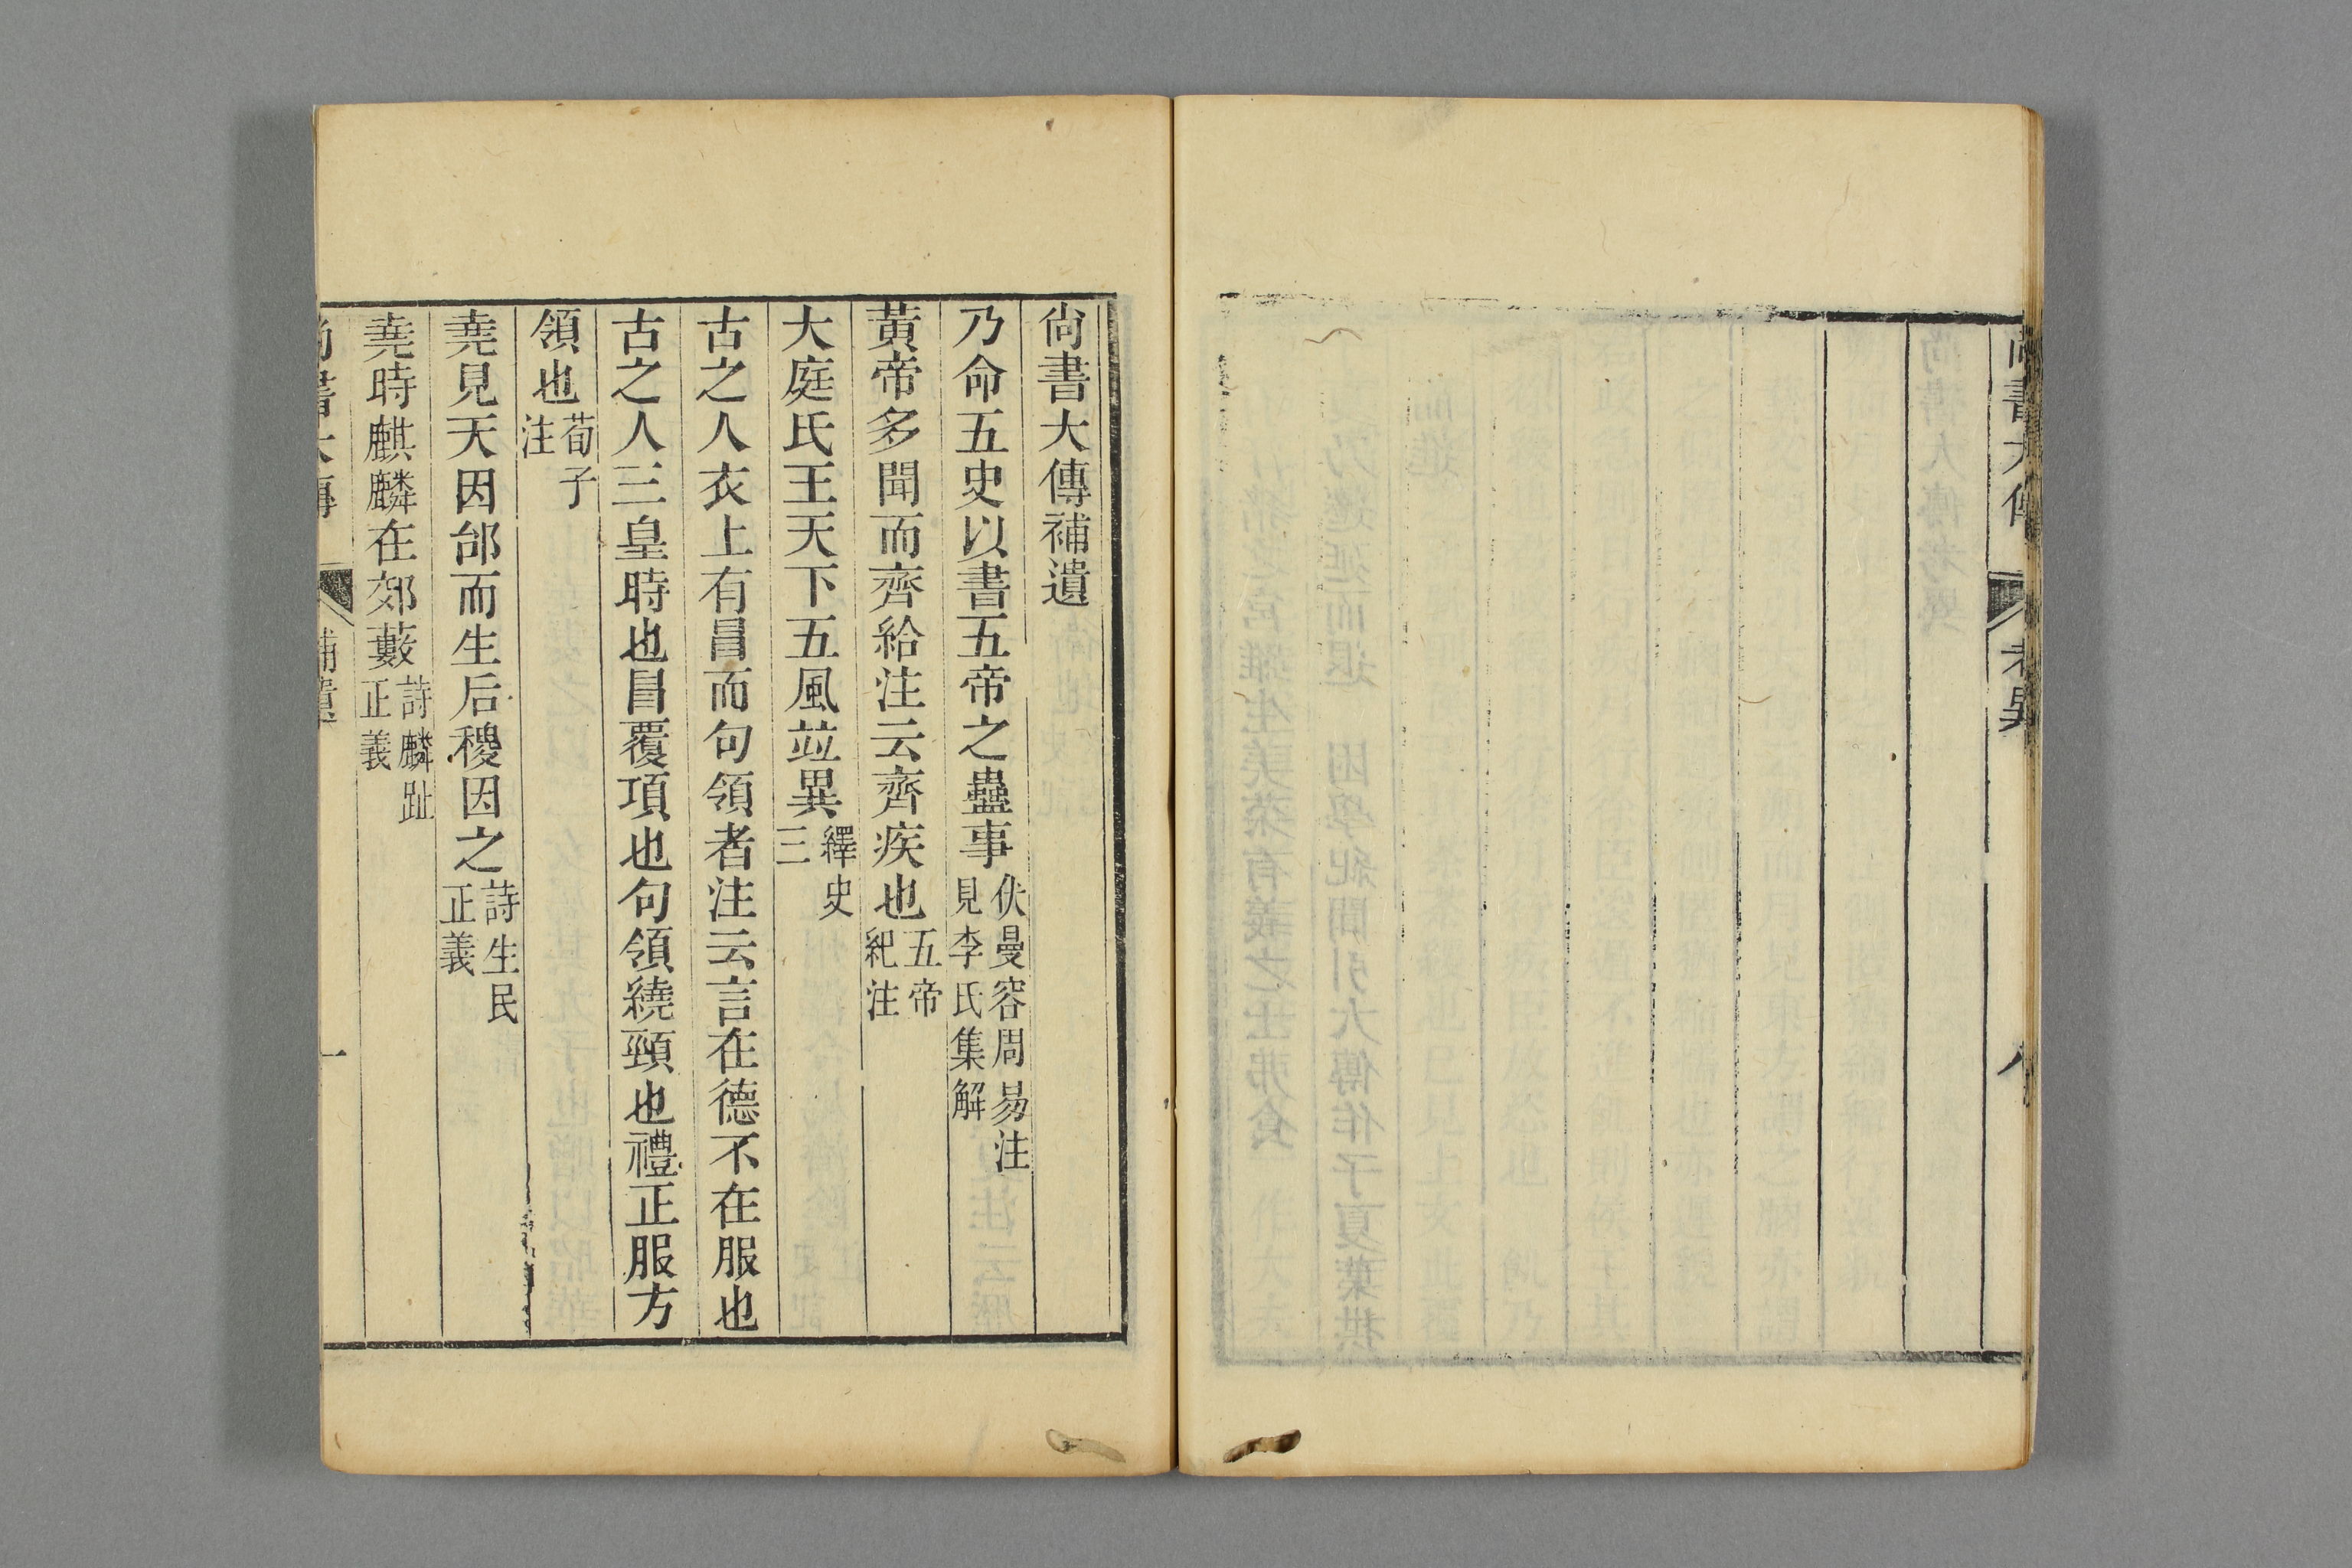 尚書大傳
考異
八
尚書大傳補遺
乃命五史以書五帝之蠱事伏曼容周易注見李氏集解
黃帝多聞而齊給注云齊疾也五帝紀注
大庭氏王天下五風竝異繹史三
古之人衣上有冒而句領者注云言在德不在服也
古之人三皇時也冒覆項也句領繞頸也禮正服方
領也荀子注
堯見天因邰而生后稷因之詩生民正義
堯時麒麟在郊藪詩麟趾正義
尚書大傳
補遺
一